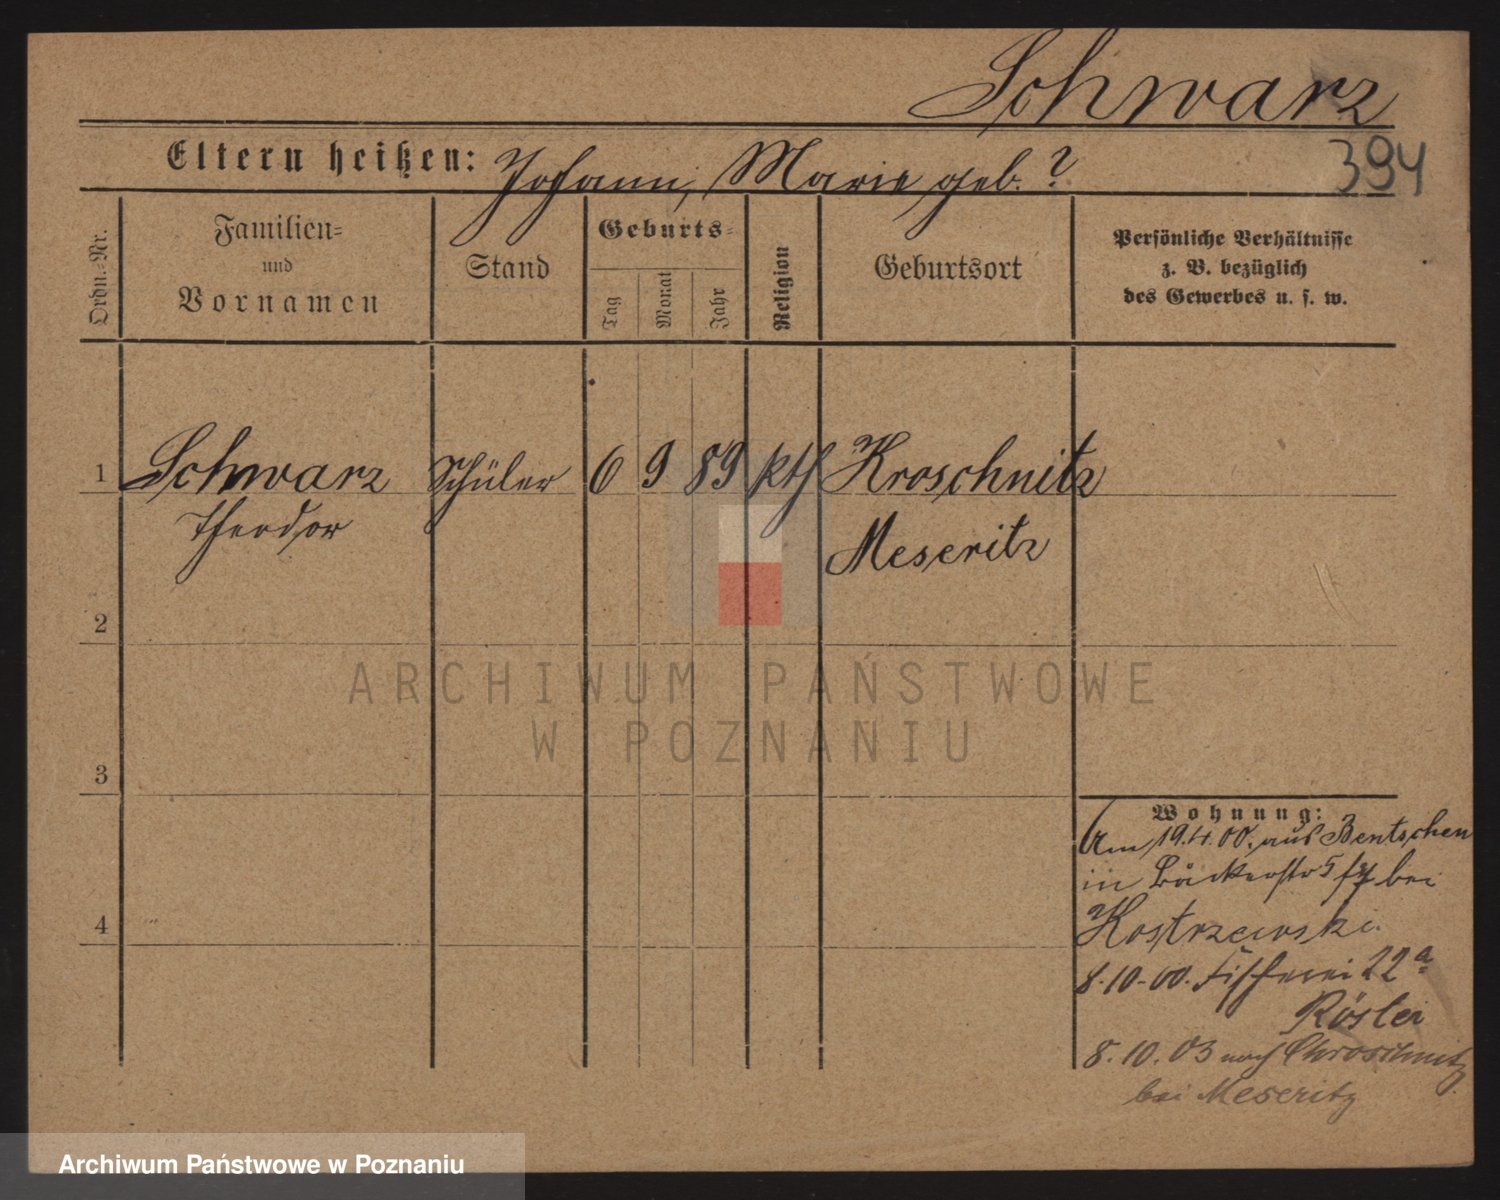 Schwarz
394
Eltern heißen: Johann, Marie geb. ?
Ordn.-Nr.
Familien-
und
Vornamen
Stand
Geburts-
Tag
Monat
Jahr
Religion
Geburtsort
Persönliche Verhältnisse
z. B. bezüglich
des Gewerbes u. s. w.
1 Schwarz Schüler 6 9 89 kth Kroschnitz
Theodor Meseritz
2
ARCHIWUM PAŃSTWOWE
W POZNANIU
3
Wohnung:
Am 19.4.00. aus Bentschen
in Bäckerstr 5 bei
Kostrzewski.
4
8.10.00. Fischerei 22a
Rösler
8.10.03 nach Chroschnitz
bei Meseritz
Archiwum Państwowe w Poznaniu